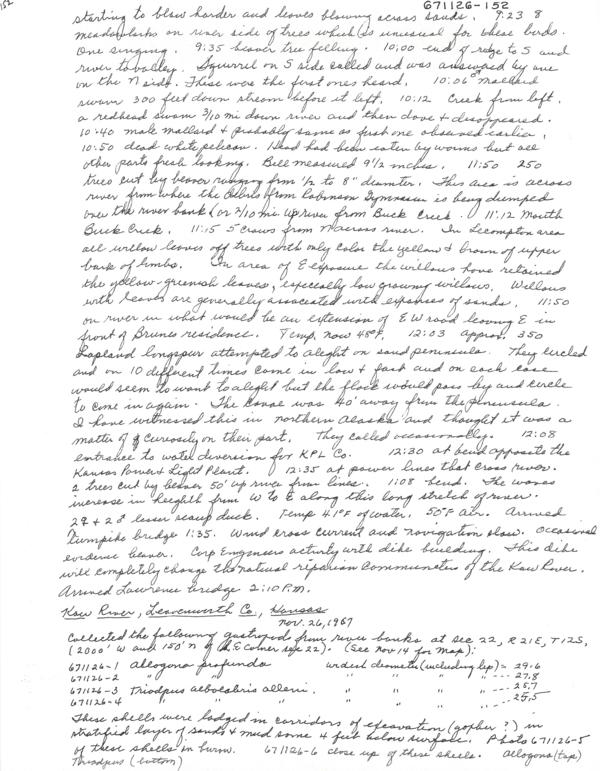 152
671126-152
starting to blow harder and leaves blowing across sands. 9:23 8
meadowlarks on river side of trees which is unusual for these birds.
One singing. 9:35 beaver tree felling. 10:00 end of ridge to S and
river to valley. Squirrel on S side called and was answered by one
on the N side. These were the first ones heard. 10:06 ♂ mallard
swam 300 feet down stream before it left. 10:12 Creek from left.
a redhead swam 3/10 mi down river and then dove & disappeared.
10:40 male mallard & probably same as first one observed earlier.
10:50 dead white pelican. Head had been eaten by worms but all
other parts fresh looking. Bill measured 9 1/2 inches. 11:50 250
trees cut by beaver ranging from 1/2 to 8" diameter. This area is across
river from where the debris from Robinson Gymnasium is being dumped
over the river bank (or 2/10 mi up river from Buck Creek. 11:12 Mouth
Buck Creek. 11:15 5 Crows from N across river. In Lecompton area
all willow leaves off trees with only color the yellow & brown of upper
bark of limbs. In area of E exposure the willows have retained
the yellow-greenish leaves, especially low growing willows. Willows
with leaves are generally associated with expanses of sands. 11:50
on river in what would be an extension of E W road leaving E in
front of Brunes residence. Temp. now 48°F. 12:03 approx. 350
Lapland longspur attempted to alight on sand peninsula. They circled
and on 10 different times come in low & fast and on each case
would seem to want to alight but the flock would pass by and circle
to come in again. The canoe was 40' away from the peninsula.
I have witnessed this in northern Alaska and thought it was a
matter of curiosity on their part. They called occasionally. 12:08
entrance to water diversion for KPL Co. 12:30 at bend opposite the
Kansas Power & Light Plant. 12:35 at power lines that cross river.
2 trees cut by beaver 50' up river from lines. 1:08 bend. The waves
increase in heighth from W to E along this long stretch of river.
2♀ & 2♂ lesser scaup duck. Temp 41°F of water. 50°F air. Arrived
Turnpike bridge 1:35. Wind cross current and navigation slow. Occasional
evidence beaver. Corp Engineers activity with dike building. This dike
will completely change the natural riparian communities of the Kaw River.
Arrived Lawrence bridge 2:10 P.M.
Kaw River, Leavenworth Co., Kansas
Nov. 26, 1967
Collected the following gastropods from river banks at sec 22, R21E, T12S,
(2000' W and 150' N of SE corner sec 22). (See Nov 14 for map):
671126-1 Allogona profunda widest diameter (including lip) = 29.6
671126-2 " " " " " " --- 27.8
671126-3 Triodopus albolabris alleni. " " " " --- 25.7
671126-4 " " " " " " --- 25.5
These shells were lodged in corridors of excavation (gopher?) in
stratified layer of sands & mud some 4 feet below surface. Photo 671126-5
of these shells in burrow. 671126-6 close up of these shells. Allogona (top)
Triodopus (bottom)